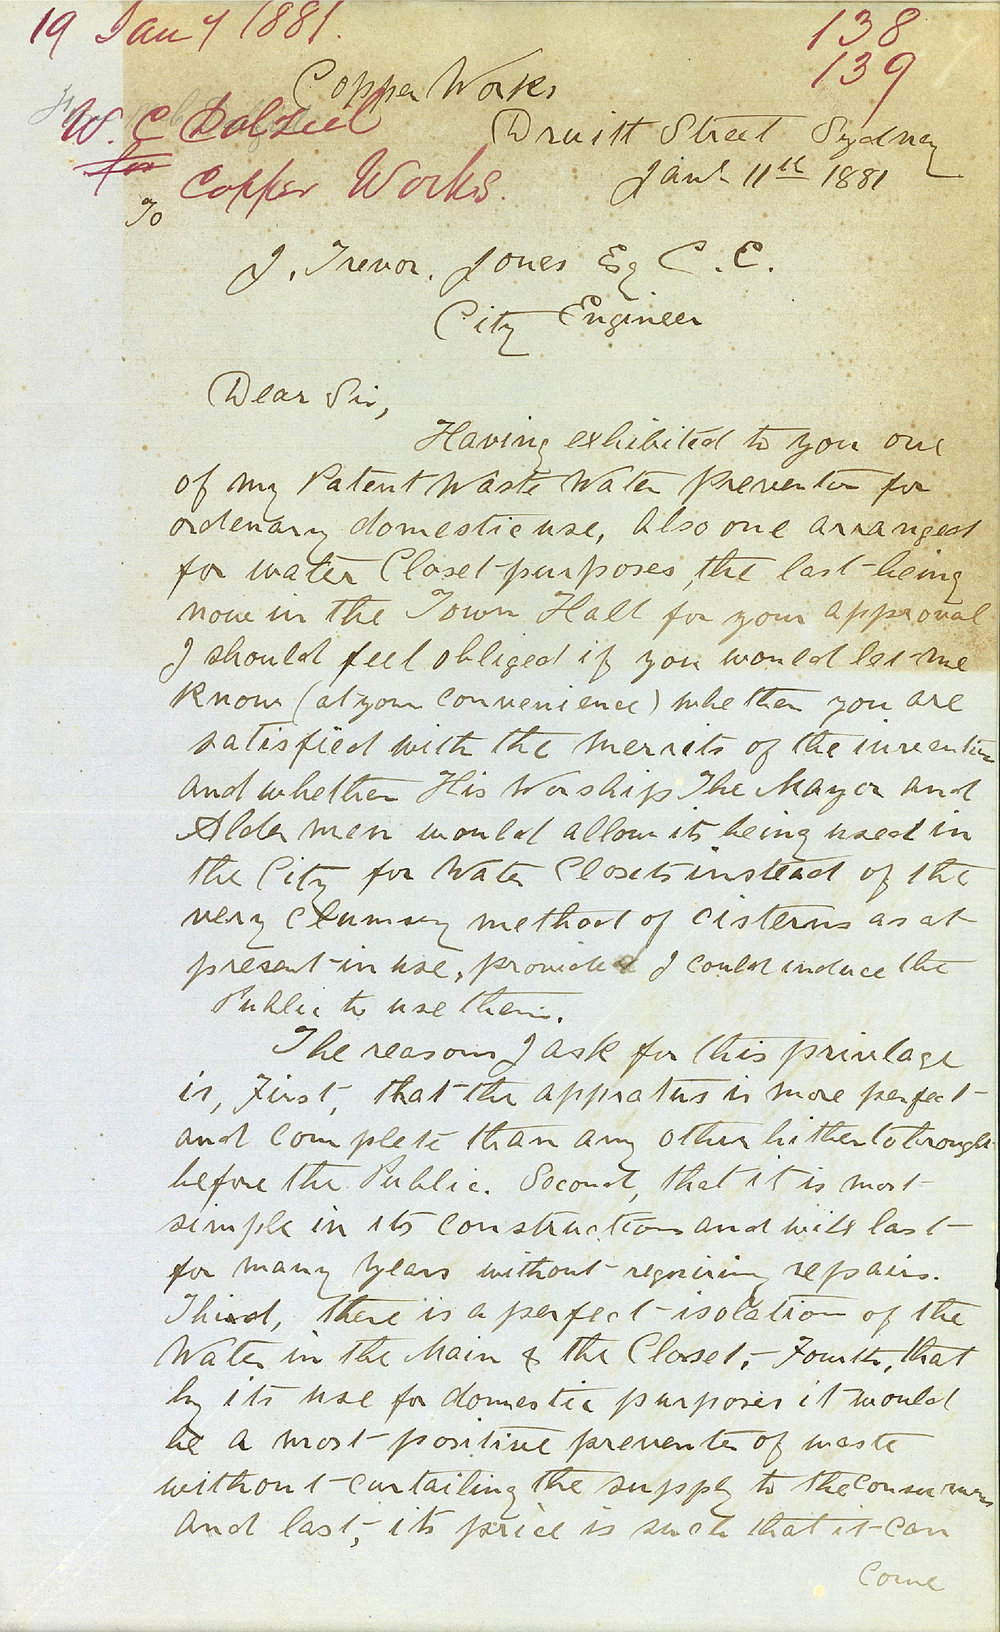 19 Jany 1881.
138
139
W. C Dalziel
for
Copper Works.
Copper Works
Druitt Street Sydney
Jany 11th 1881
To
J. Trevor. Jones Esq C. E.
City Engineer
Dear Sir,
Having exhibited to you one
of my Patent Waste Water preventer for
ordenary domestic use, also one arranged
for water Closet purposes the last being
now in the Town Hall for your approval
I should feel obliged if you would let me
know (at your convenience) whether you are
satisfied with the merrits of the invention
and whether His Worship The Mayor and
Aldermen would allow its being used in
the City for Water Closets instead of the
very clumsey method of cisterns as at
present in use, provided I could induce the
Public to use them.
The reasons I ask for this privelage
is, First, that the appratus is more perfect
and complete than any other hitherto brought
before the Public. Second, that it is most
simple in its construction and will last
for many years without requiring repairs.
Third, there is a perfect isolation of the
Water in the Main & the Closet,- Fourth, that
by its use for domestic purposes it would
be a most positive preventer of waste
without curtailing the supply to the consumers
and last, its price is such that it can
come